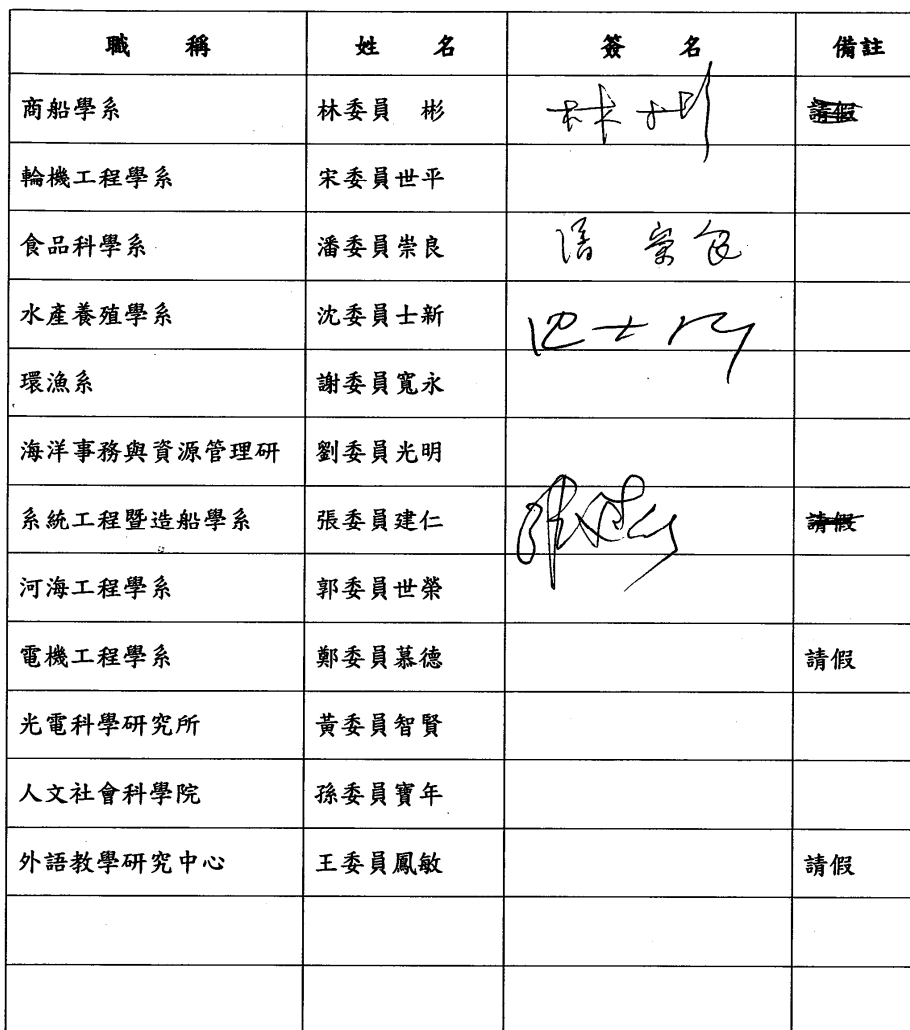 職 稱 姓 名 簽 名 備註
商船學系 林委員 彬 林彬 請假
輪機工程學系 宋委員世平
食品科學系 潘委員崇良 潘崇良
水產養殖學系 沈委員士新 沈士新
環漁系 謝委員寬永
海洋事務與資源管理研 劉委員光明
系統工程暨造船學系 張委員建仁 張建仁 請假
河海工程學系 郭委員世榮
電機工程學系 鄭委員慕德 請假
光電科學研究所 黃委員智賢
人文社會科學院 孫委員寶年
外語教學研究中心 王委員鳳敏 請假